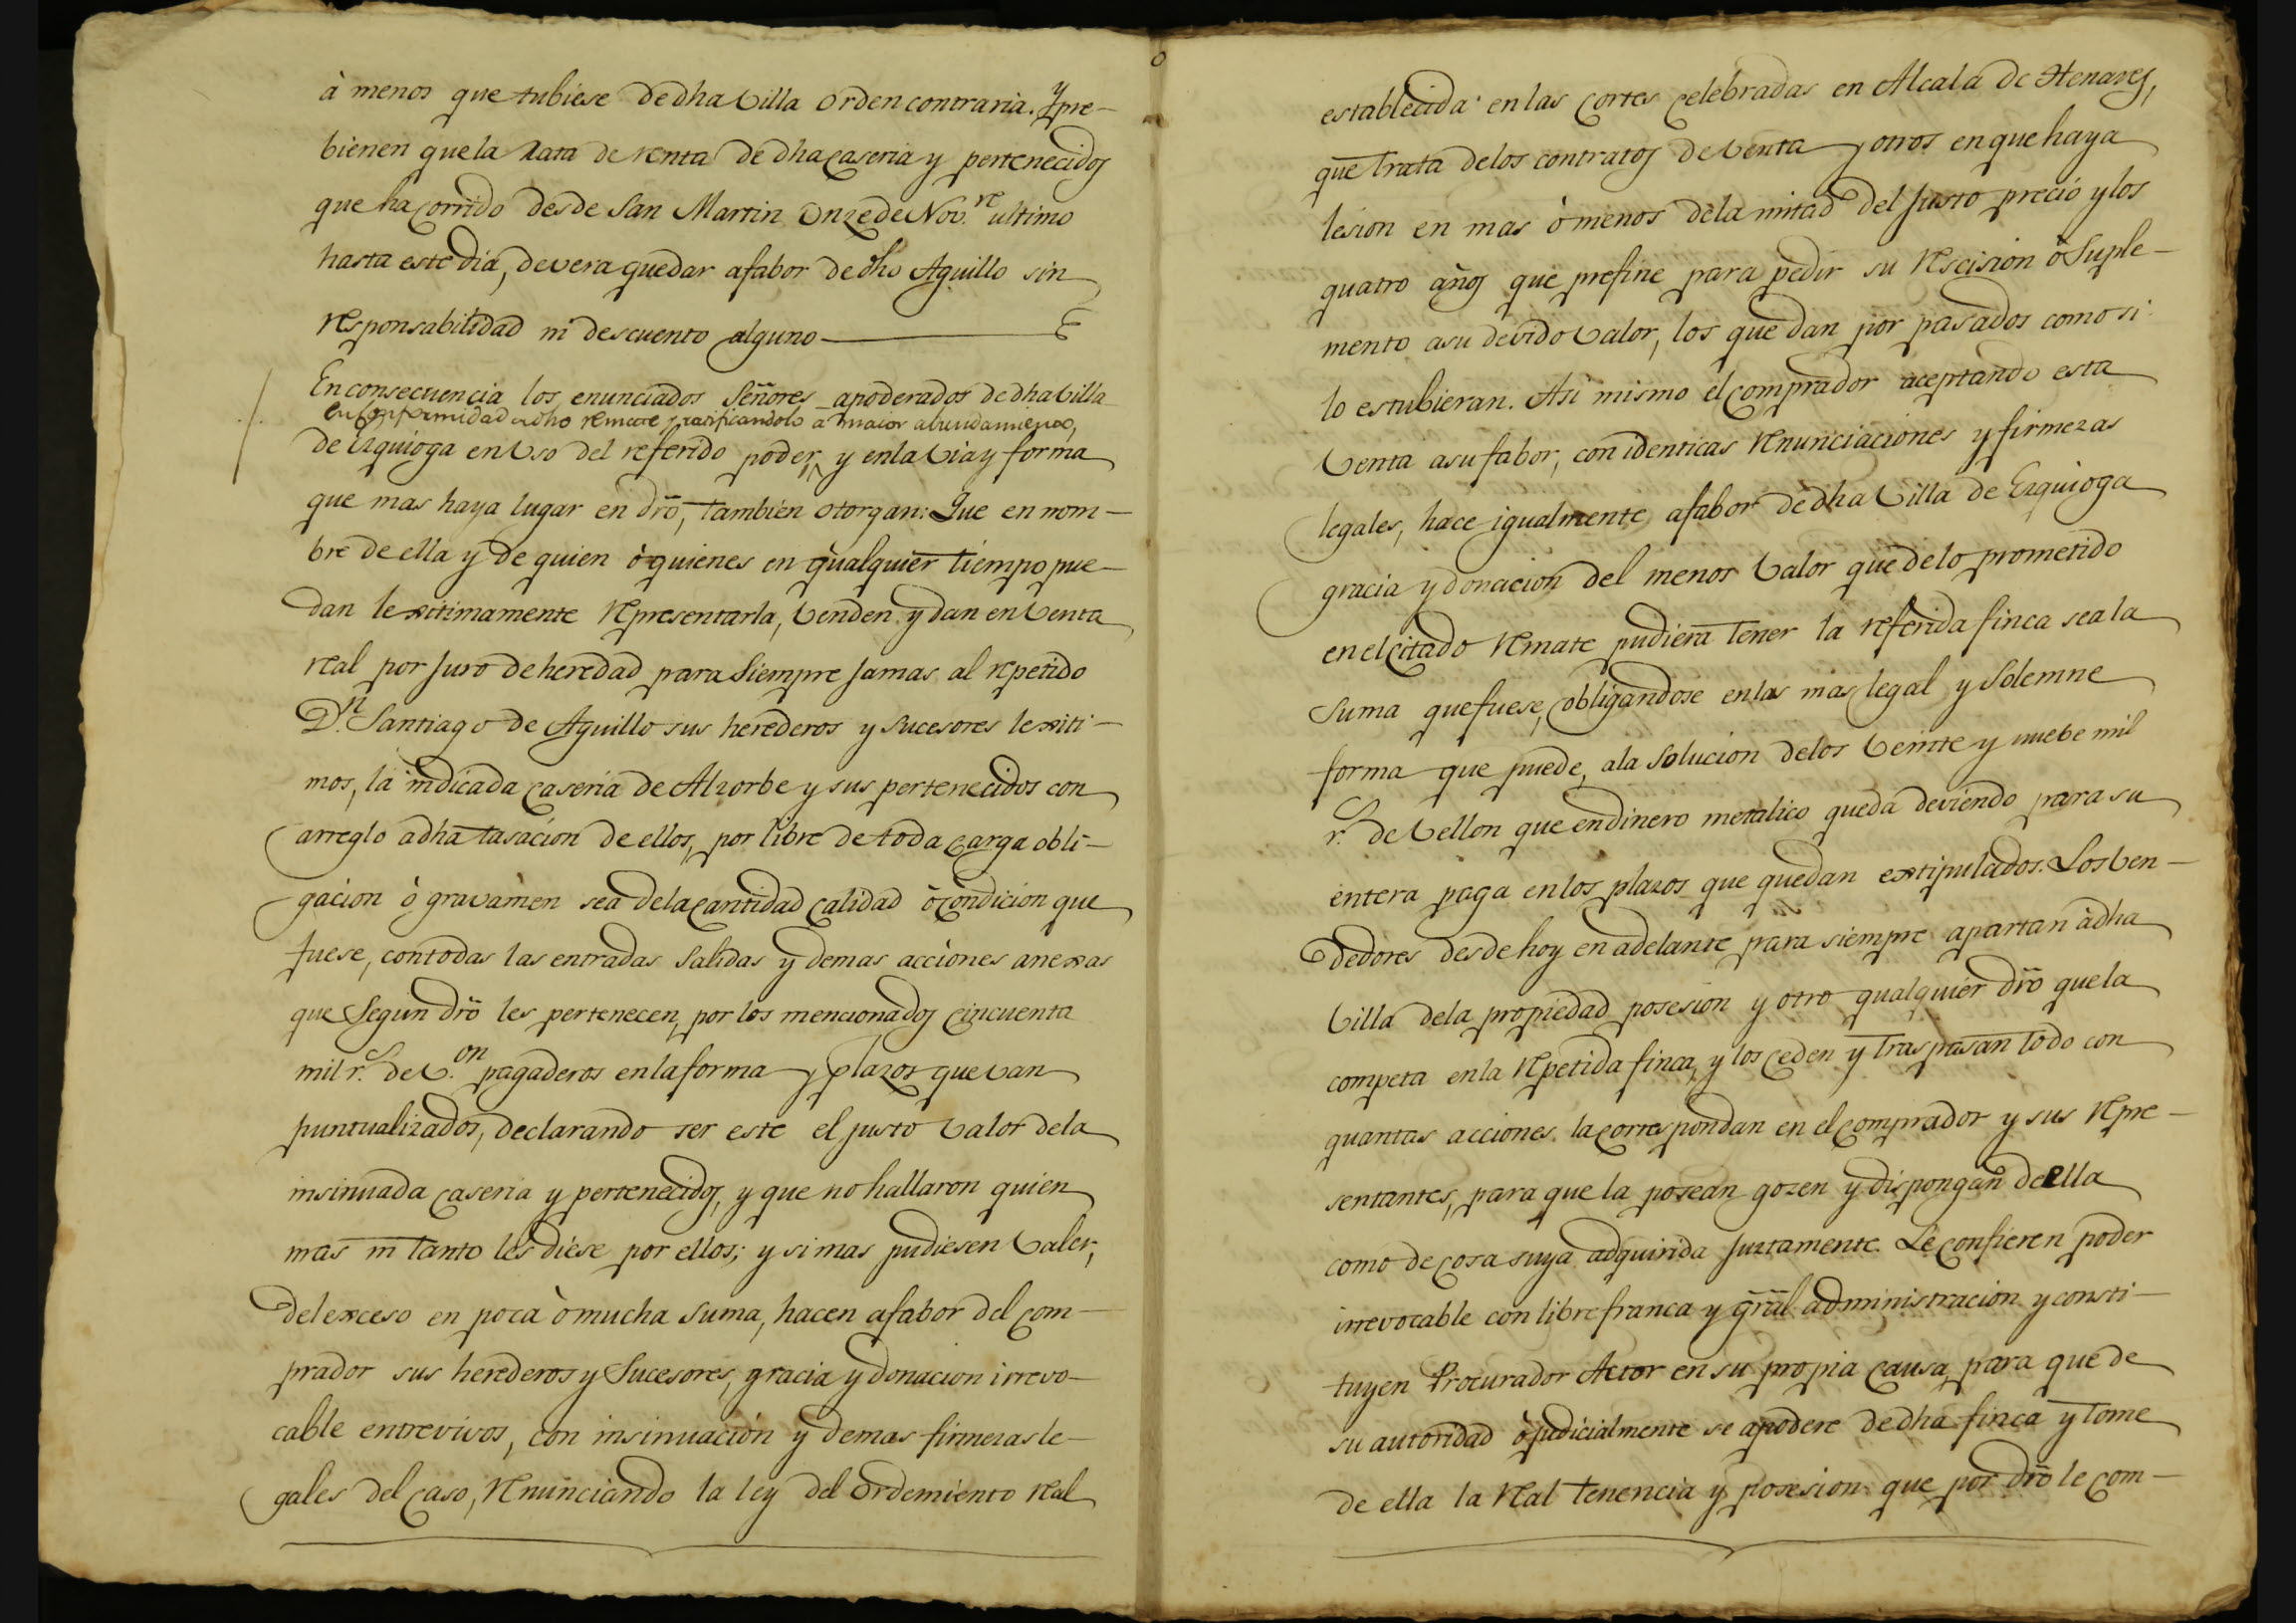 à menos que tubiese de dha Villa orden contraria. Y pre-
bienen que la rata de renta de dha caseria y pertenecidos
que ha corrido desde San Martin Onze de Nov.re ultimo
hasta este dia, devera quedar afabor de dho Aguillo sin
responsabilidad ni descuento alguno
En consecuencia los enunciados Señores apoderados de dha Villa
en conformidad a dho remate y ratificandolo a maior abundamiento,
de Ezquioga en Uso del referido poder, y en la Via y forma
que mas haya lugar en dro, tambien otorgan: Que en nom-
bre de ella y de quien ò quienes en qualquier tiempo pue-
dan lexitimamente representarla, Venden y dan en Venta
real por Juro de heredad para Siempre Jamas al repetido
D.n Santiago de Aguillo sus herederos y sucesores lexiti-
mos, la indicada caseria de Alzorbe y sus pertenecidos con
arreglo a dha tasacion de ellos, por libre de toda carga obli-
gacion ò gravamen sea de la cantidad calidad ò condicion que
fuese, con todas las entradas Salidas y demas acciones anexas
que Segun dro les pertenecen, por los mencionados cincuenta
mil r.s de V.on pagaderos en la forma y plazos que van
puntualizados, declarando ser este el justo Valor de la
insinuada caseria y pertenecidos, y que no hallaron quien
mas ni tanto les diese por ellos; y si mas pudiesen Valer,
del exceso en poca ò mucha suma, hacen afabor del com-
prador sus herederos y Sucesores, gracia y donacion irrevo-
cable entrevivos, con insinuacion y demas firmezas le-
gales del caso, renunciando la ley del Ordemiento real
establecida en las Cortes celebradas en Alcalá de Henares,
que trata de los contratos de Venta y otros en que haya
lesion en mas ò menos de la mitad del Justo precio y los
quatro años que prefine para pedir su rescision ò Suple-
mento a su devido Valor, los que dan por pasados como si
lo estubieran. Asi mismo el comprador aceptando esta
Venta a su fabor, con identicas renunciaciones y firmezas
legales, hace igualmente afabor de dha Villa de Ezquioga
gracia y donacion del menos Valor que de lo prometido
en el citado remate pudiera tener la referida finca sea la
Suma que fuese, obligandose en las mas legal y Solemne
forma que puede, a la Solucion de los Veinte y nuebe mil
r.s de Vellon que en dinero metalico queda deviendo para su
entera paga en los plazos que quedan extipulados. Los Ven-
dedores desde hoy en adelante para siempre apartan à dha
Villa de la propiedad posesion y otro qualquier dro que la
competa en la repetida finca, y los ceden y traspasan todo con
quantas acciones la correspondan en el comprador y sus repre-
sentantes, para que la posean gozen y dispongan de ella
como de cosa suya adquirida Justamente. Le confieren poder
irrevocable con libre franca y gral administracion y consti-
tuyen Procurador Actor en su propia causa para que de
su autoridad ò judicialmente se apodere de dha finca y tome
de ella la real tenencia y posesion que por dro le com-